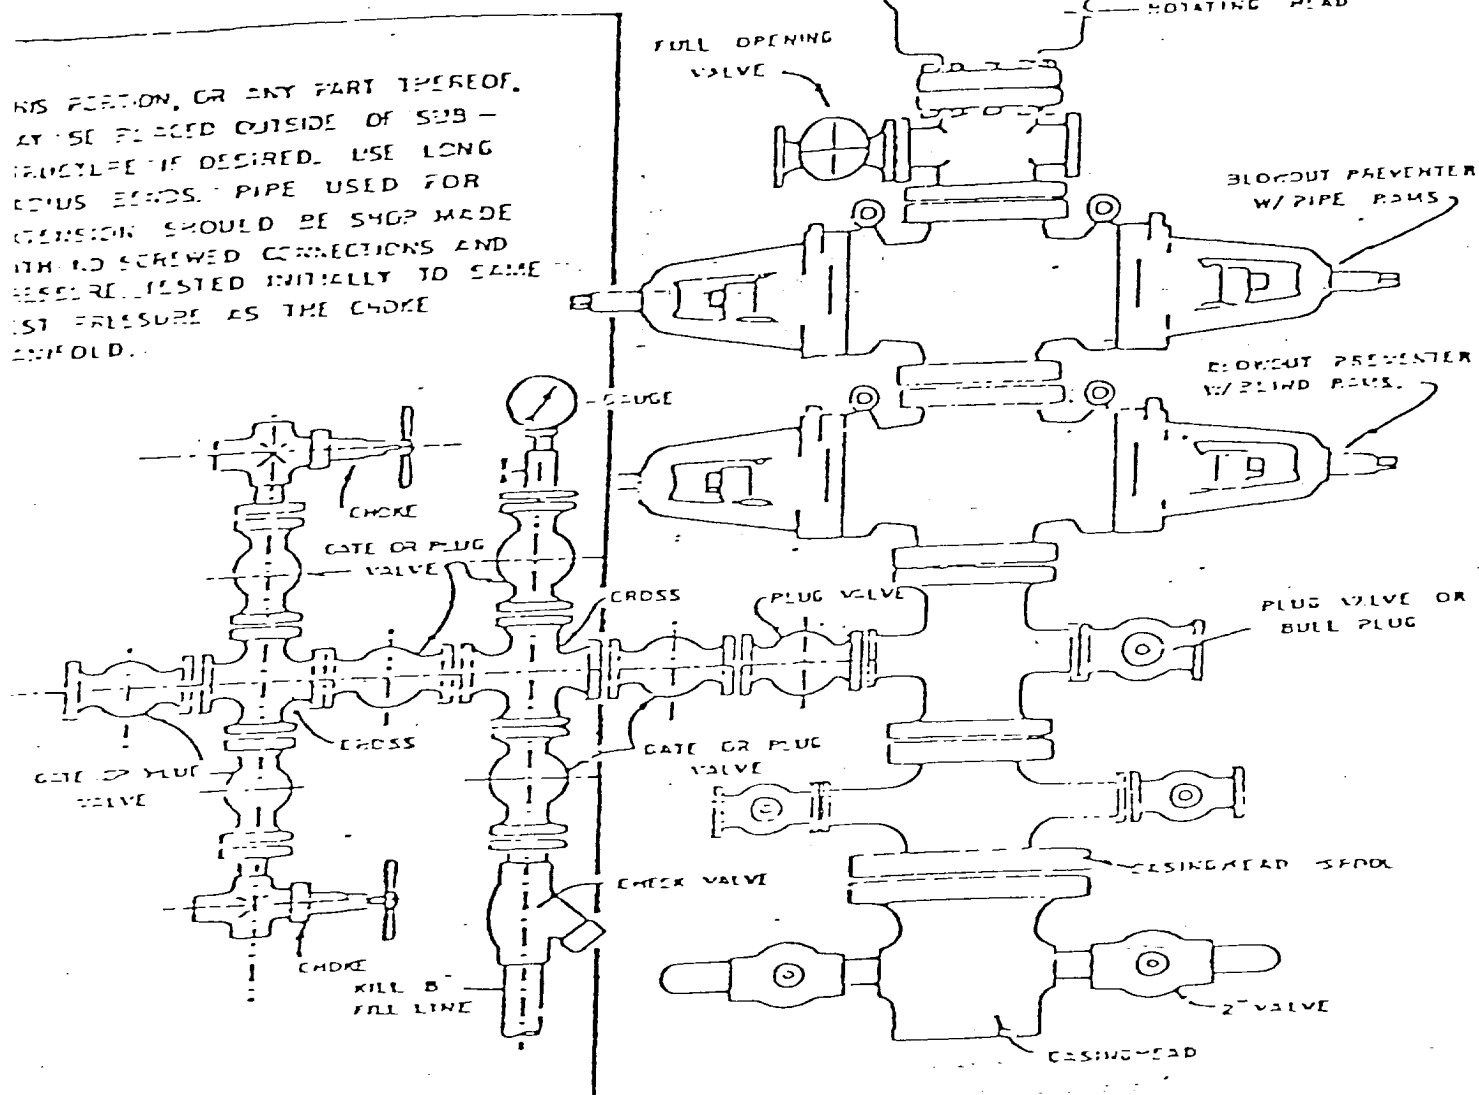 ROTATING HEAD
FULL OPENING
VALVE
HIS PORTION, OR ANY PART THEREOF,
AY BE PLACED OUTSIDE OF SUB-
RUCTURE IF DESIRED. USE LONG
BENDS. PIPE USED FOR
SHOULD BE SHOP MADE
ITH NO SCREWED CONNECTIONS AND
TESTED INITIALLY TO SAME
ST PRESSURE AS THE CHOKE
ANIFOLD.
BLOWOUT PREVENTER
W/ PIPE RAMS
BLOWOUT PREVENTER
W/ BLIND RAMS.
GAUGE
CHOKE
GATE OR PLUG
VALVE
CROSS
PLUG VALVE
PLUG VALVE OR
BULL PLUG
CROSS
GATE OR PLUG
VALVE
GATE OR PLUG
VALVE
CASINGHEAD SPOOL
CHECK VALVE
CHOKE
KILL &
FILL LINE
2" VALVE
CASINGHEAD